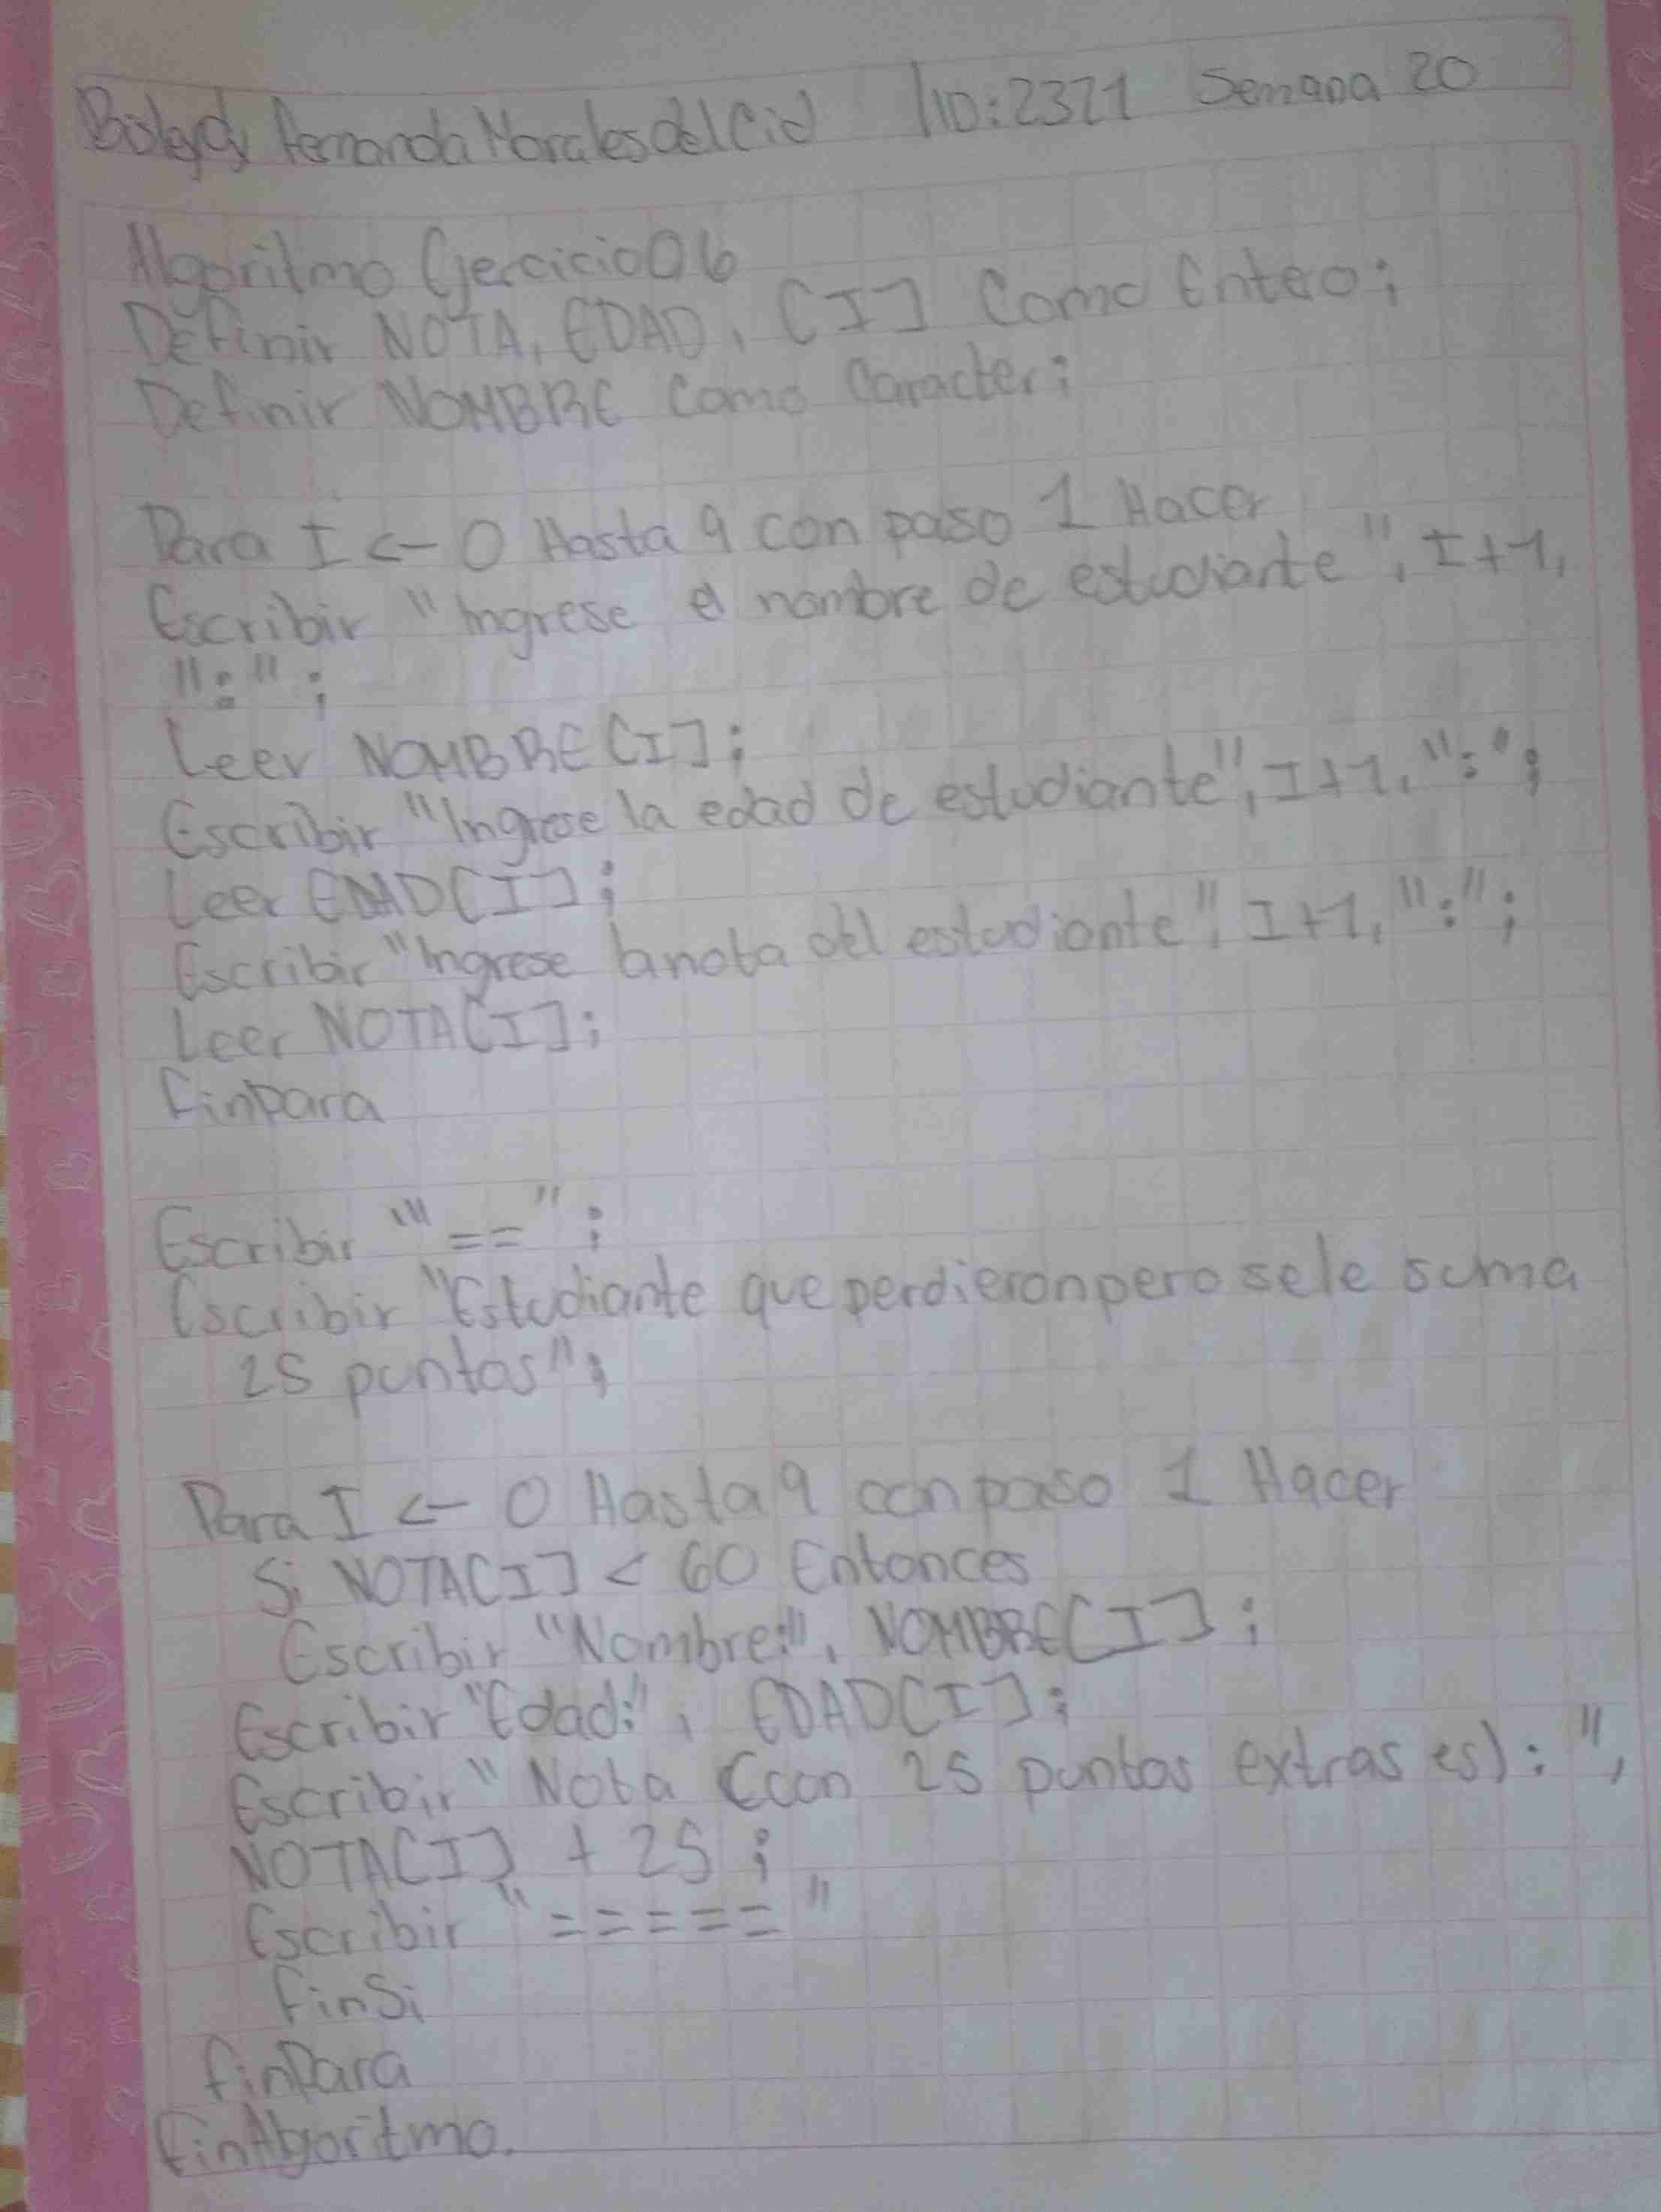 Fernanda Morales del Cid ID: 2321 Semana 20
Algoritmo Ejercicio06
Definir NOTA, EDAD, [I] Como Enteo;
Definir NOMBRE Como Caracter;
Para I <- 0 Hasta 9 con paso 1 Hacer
Escribir "Ingrese el nombre de estudiante", I+1,
":";
Leer NOMBRE[I];
Escribir "Ingrese la edad de estudiante", I+1, ":";
Leer EDAD[I];
Escribir "Ingrese la nota del estudiante", I+1, ":";
Leer NOTA[I];
FinPara
Escribir "==";
Escribir "Estudiante que perdieron pero se le suma
25 puntos";
Para I <- 0 Hasta 9 con paso 1 Hacer
Si NOTA[I] < 60 Entonces
Escribir "Nombre:", NOMBRE[I];
Escribir "Edad:", EDAD[I];
Escribir "Nota (con 25 puntos extras es): ",
NOTA[I] + 25;
Escribir "====="
FinSi
FinPara
FinAlgoritmo.